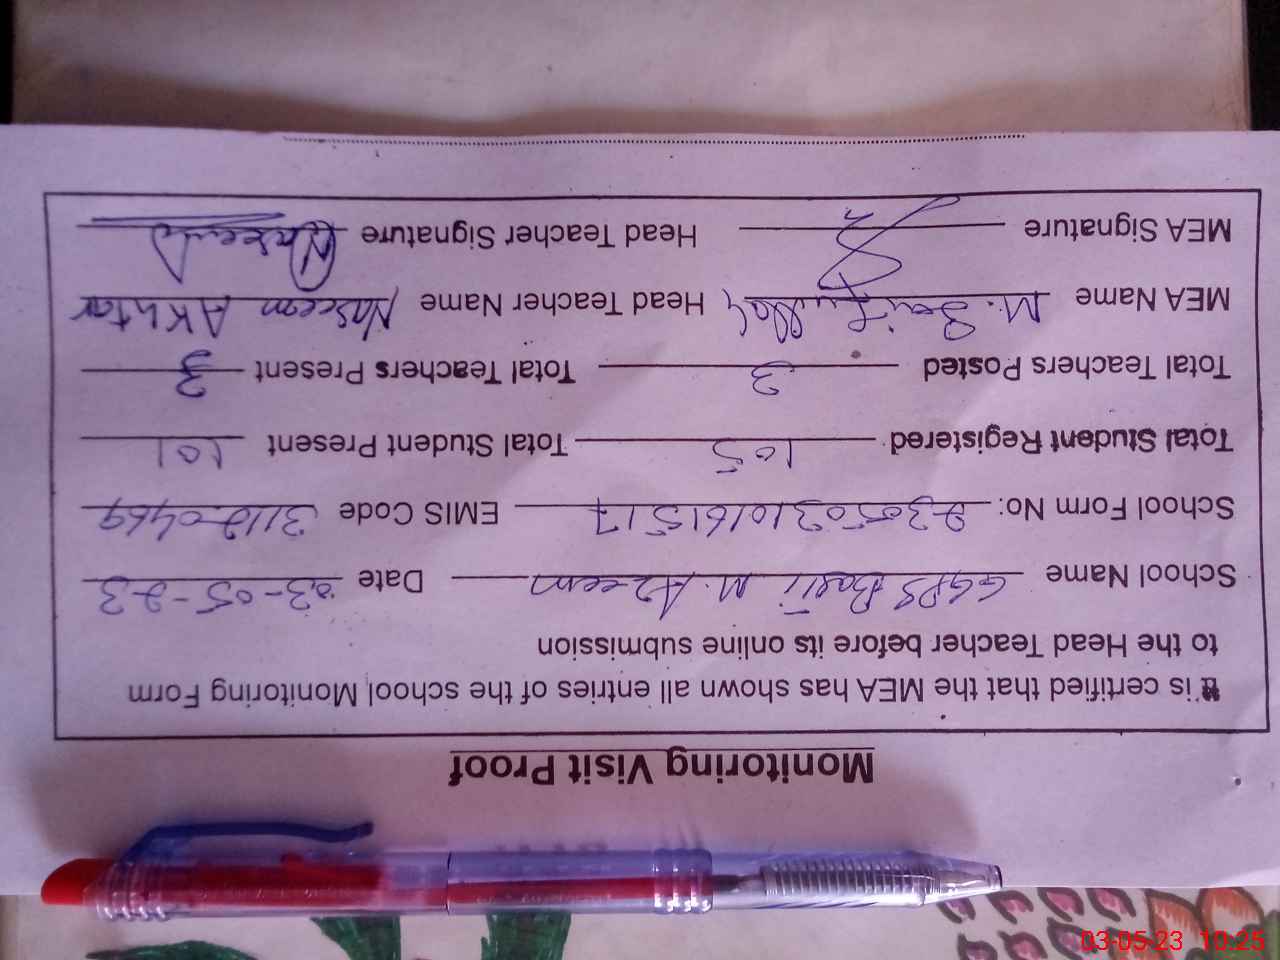 Monitoring Visit Proof
It is certified that the MEA has shown all entries of the school Monitoring Form
to the Head Teacher before its online submission
School Name GGPS Basti M. Azeem Date 03-05-23
School Form No: 23050310161517 EMIS Code 31120469
Total Student Registered 105 Total Student Present 101
Total Teachers Posted 3 Total Teachers Present 3
MEA Name M. Saifullah Head Teacher Name Naseem Akhtar
MEA Signature Head Teacher Signature Naseem
03-05-23 10:25